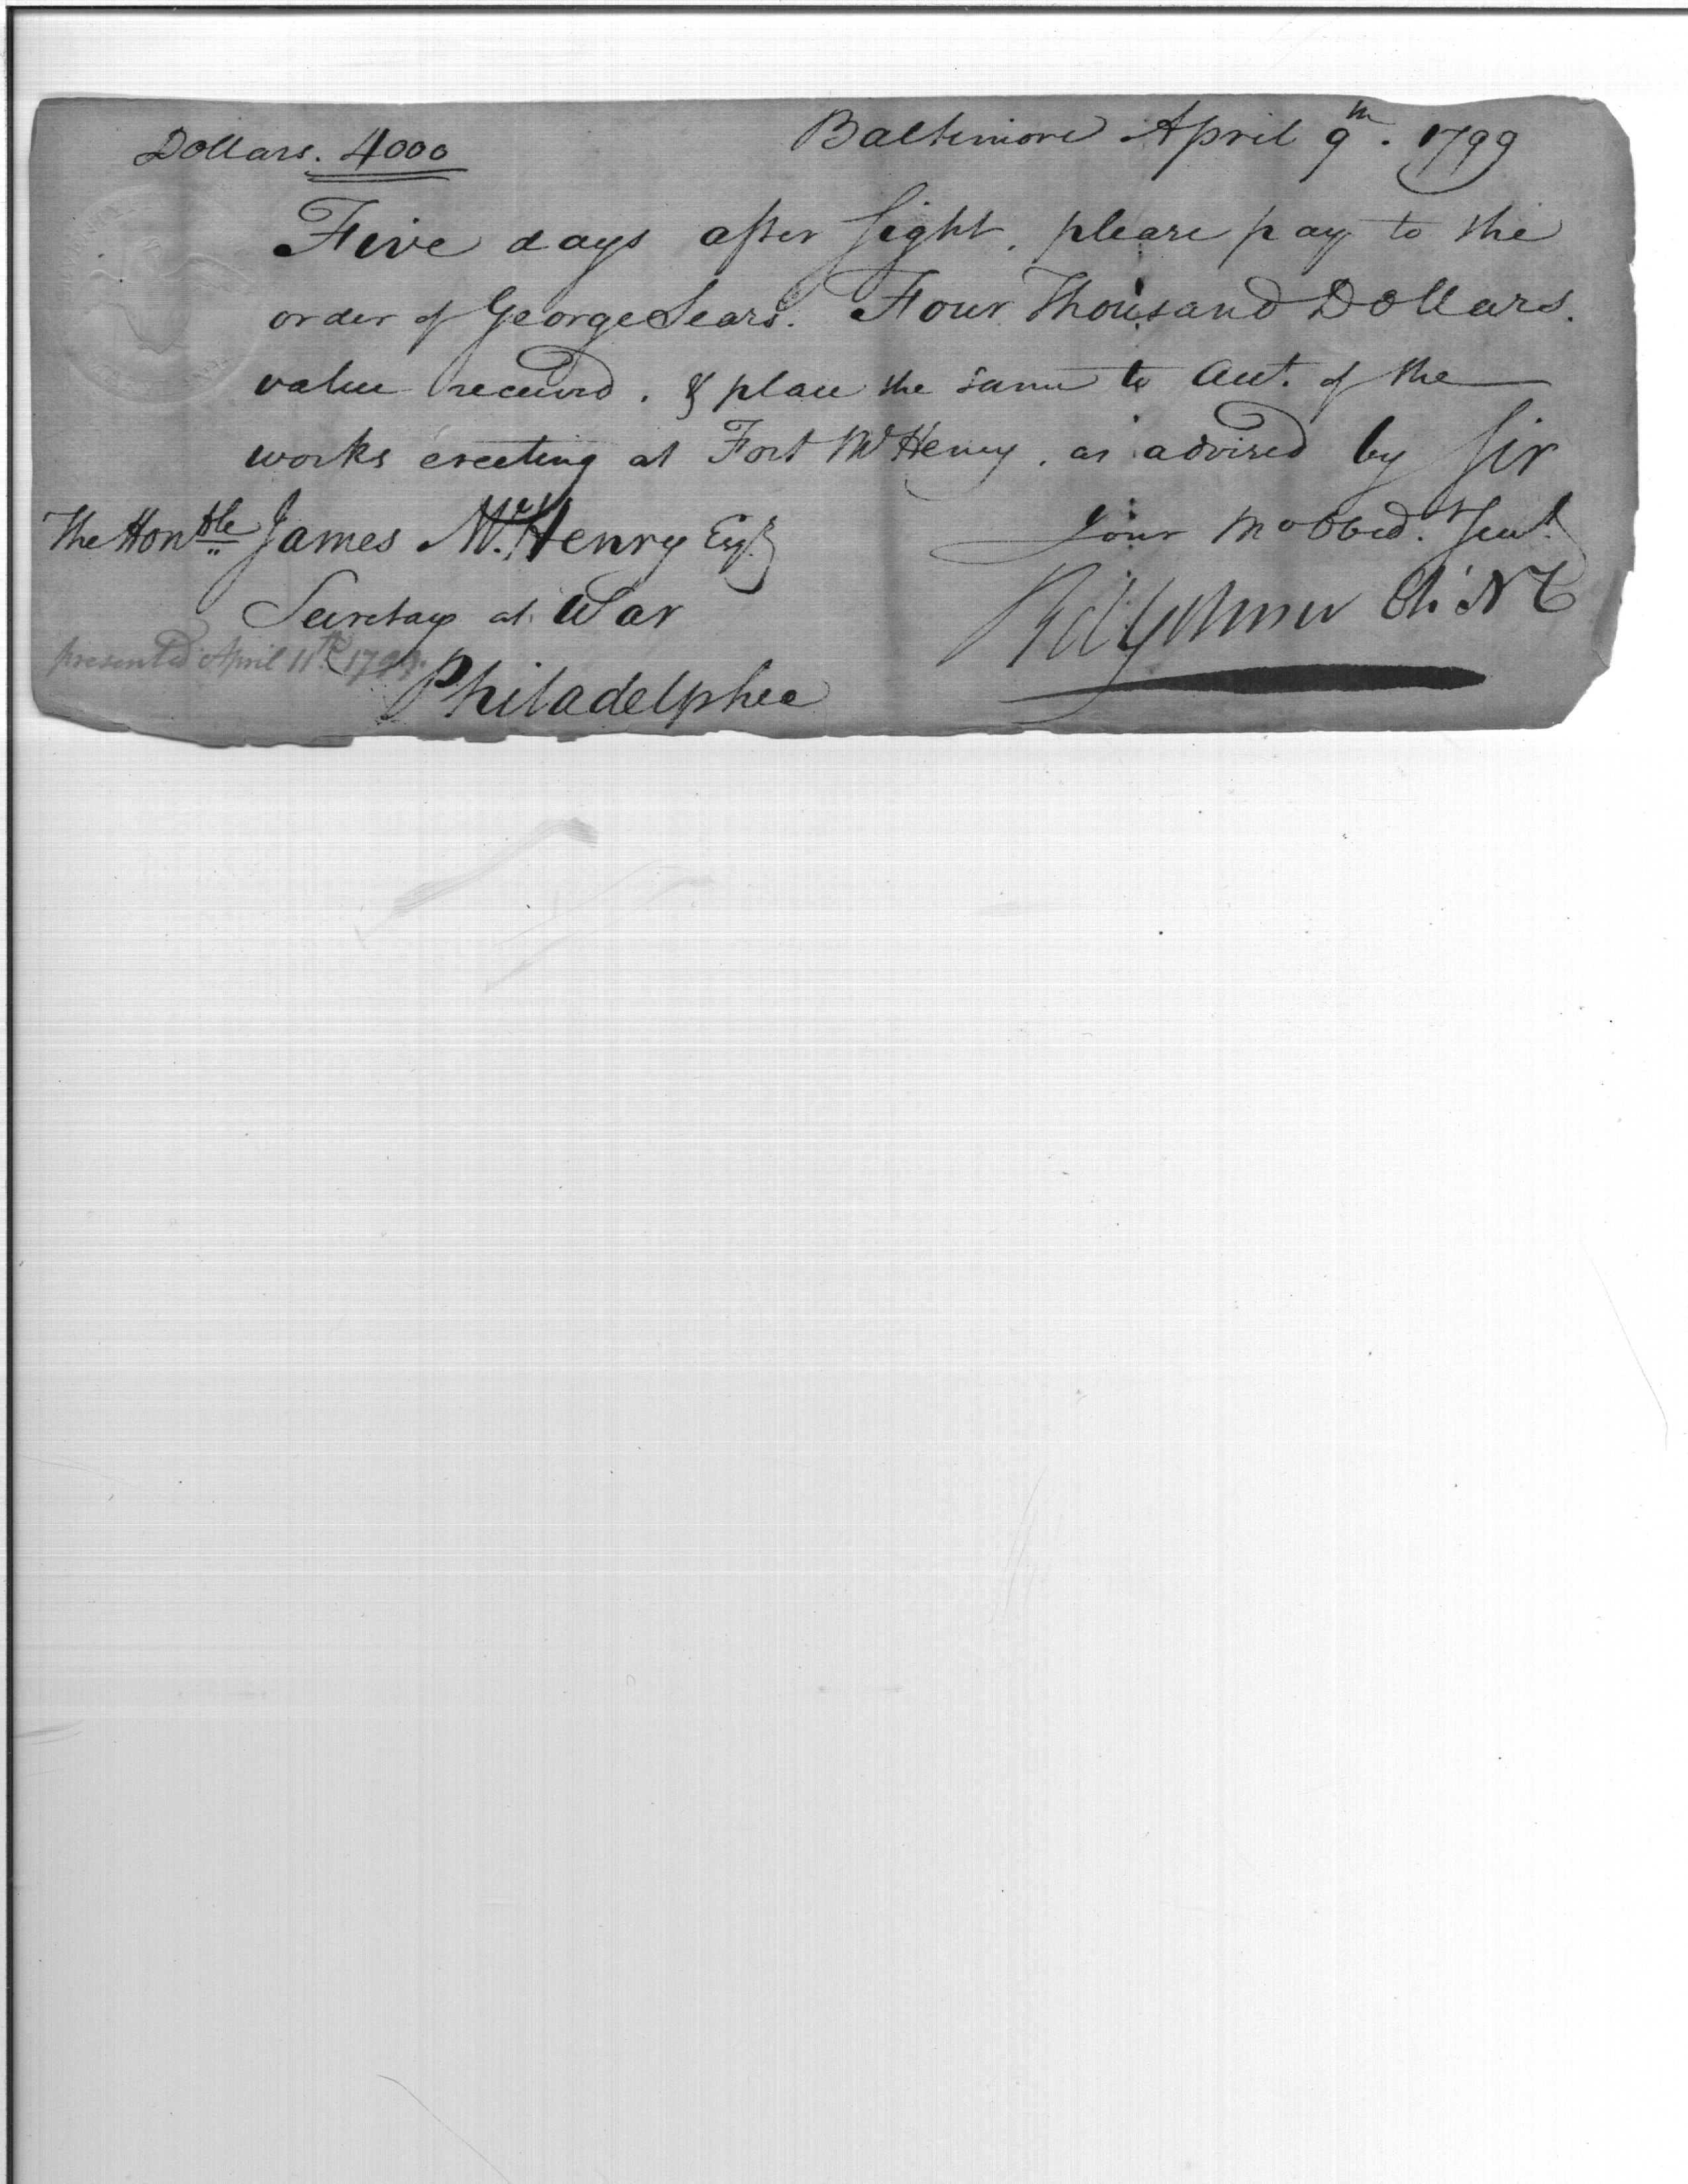 Dollars. 4000
Baltimore April 9th. 1799
Five days after sight. please pay to the
order of George Sears. Four Thousand Dollars.
value received. & place the same to Acct. of the
works erecting at Fort McHenry. as advised by Sir
The Honble James McHenry Esqr.
Your Mo Obed. Servt.
Secretary at War
presented April 11th 1799.
Philadelphia